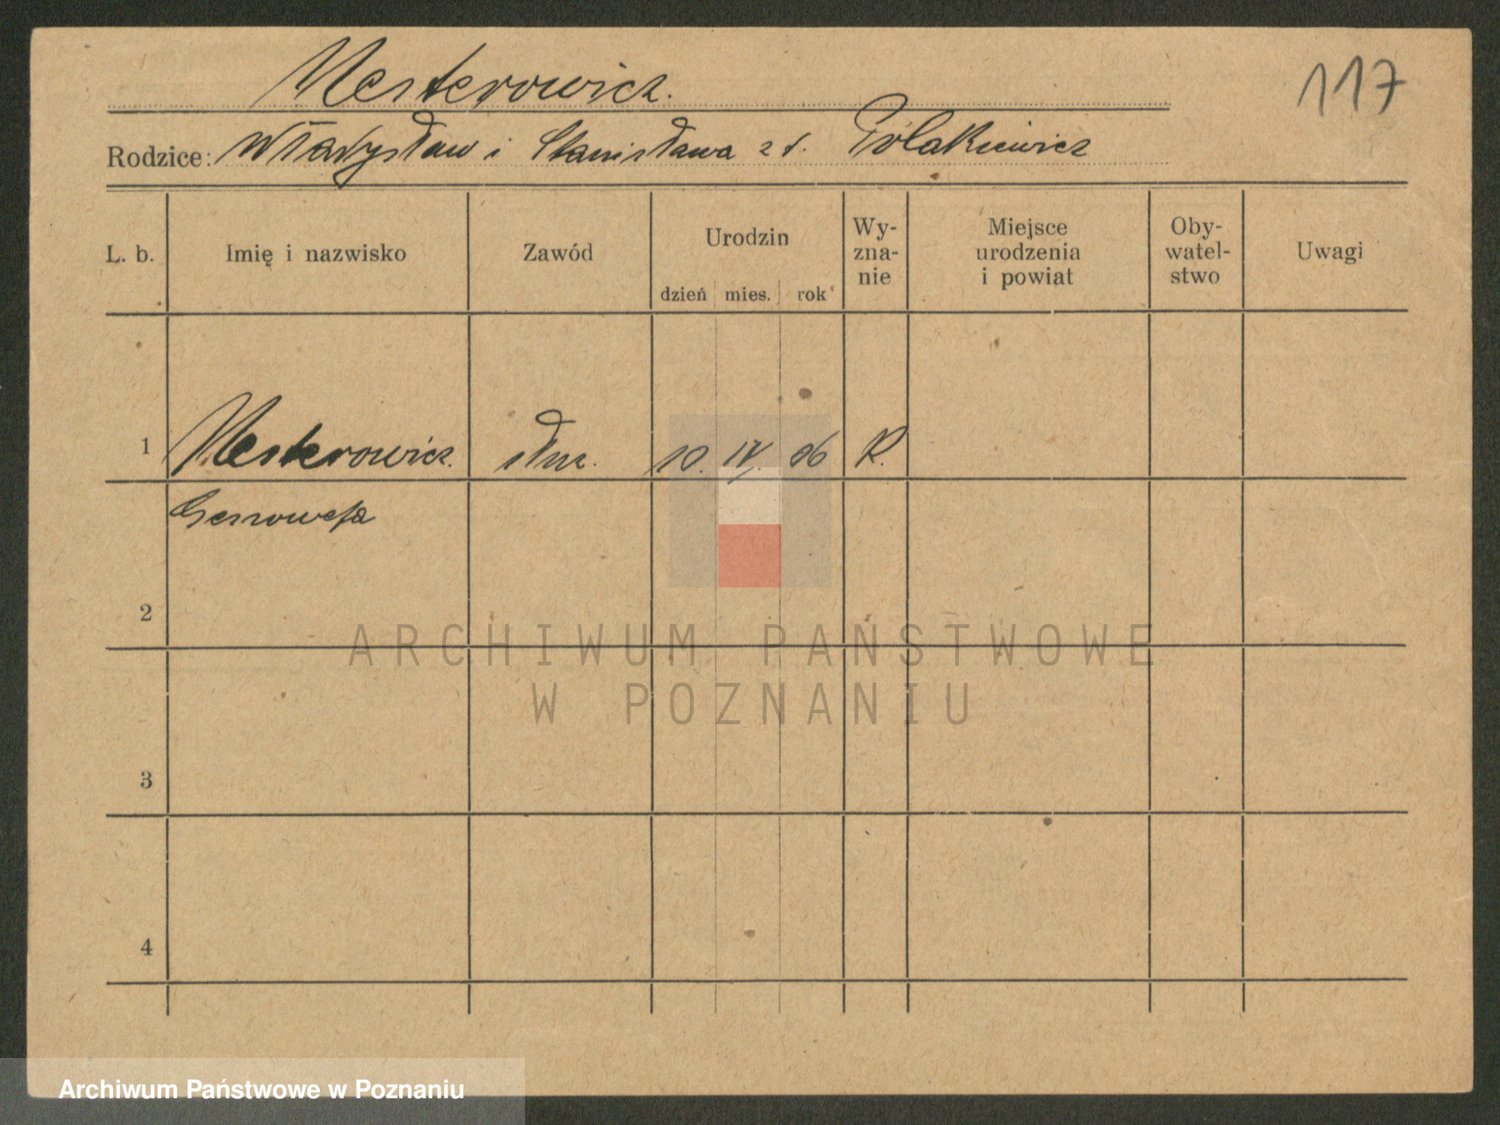 Nesterowicz.
117
Rodzice: Władysław i Stanisława z d. Polakiewicz
L. b.
Imię i nazwisko
Zawód
Urodzin
dzień mies. rok
Wy-
zna-
nie
Miejsce
urodzenia
i powiat
Oby-
watel-
stwo
Uwagi
1 Nesterowicz. służ. 10. IV. 06 R.
Genowefa
2
3
4
ARCHIWUM PAŃSTWOWE
W POZNANIU
Archiwum Państwowe w Poznaniu